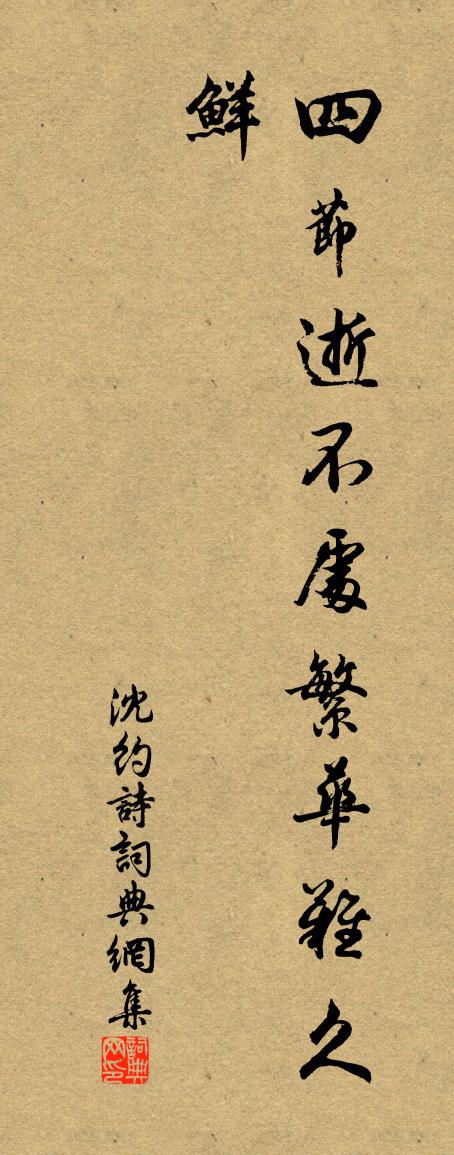 四節逝不處繁華難久
鮮
沈約詩詞典網集
詞典网印